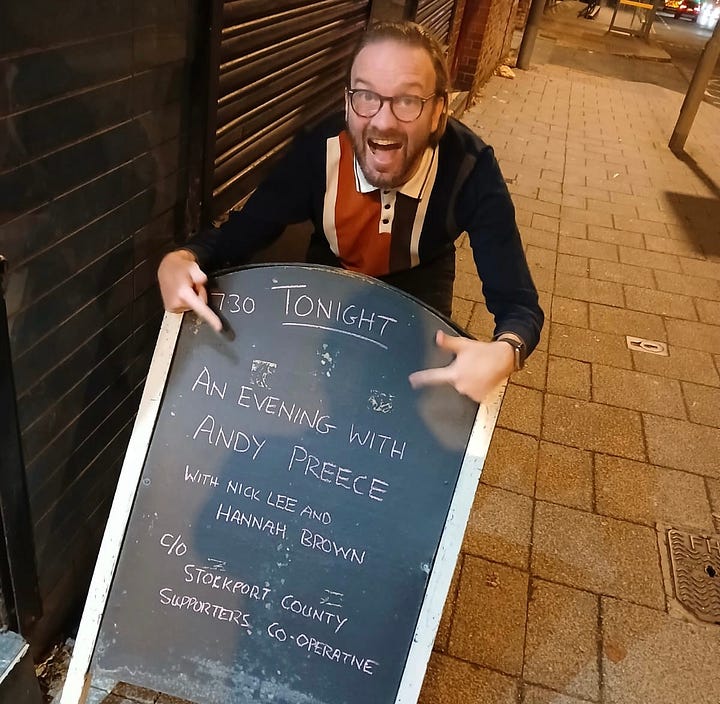 730 TONIGHT
AN EVENING WITH
ANDY PREECE
WITH NICK LEE AND
HANNAH BROWN
C/O
STOCKPORT COUNTY
SUPPORTERS CO-OPERATIVE